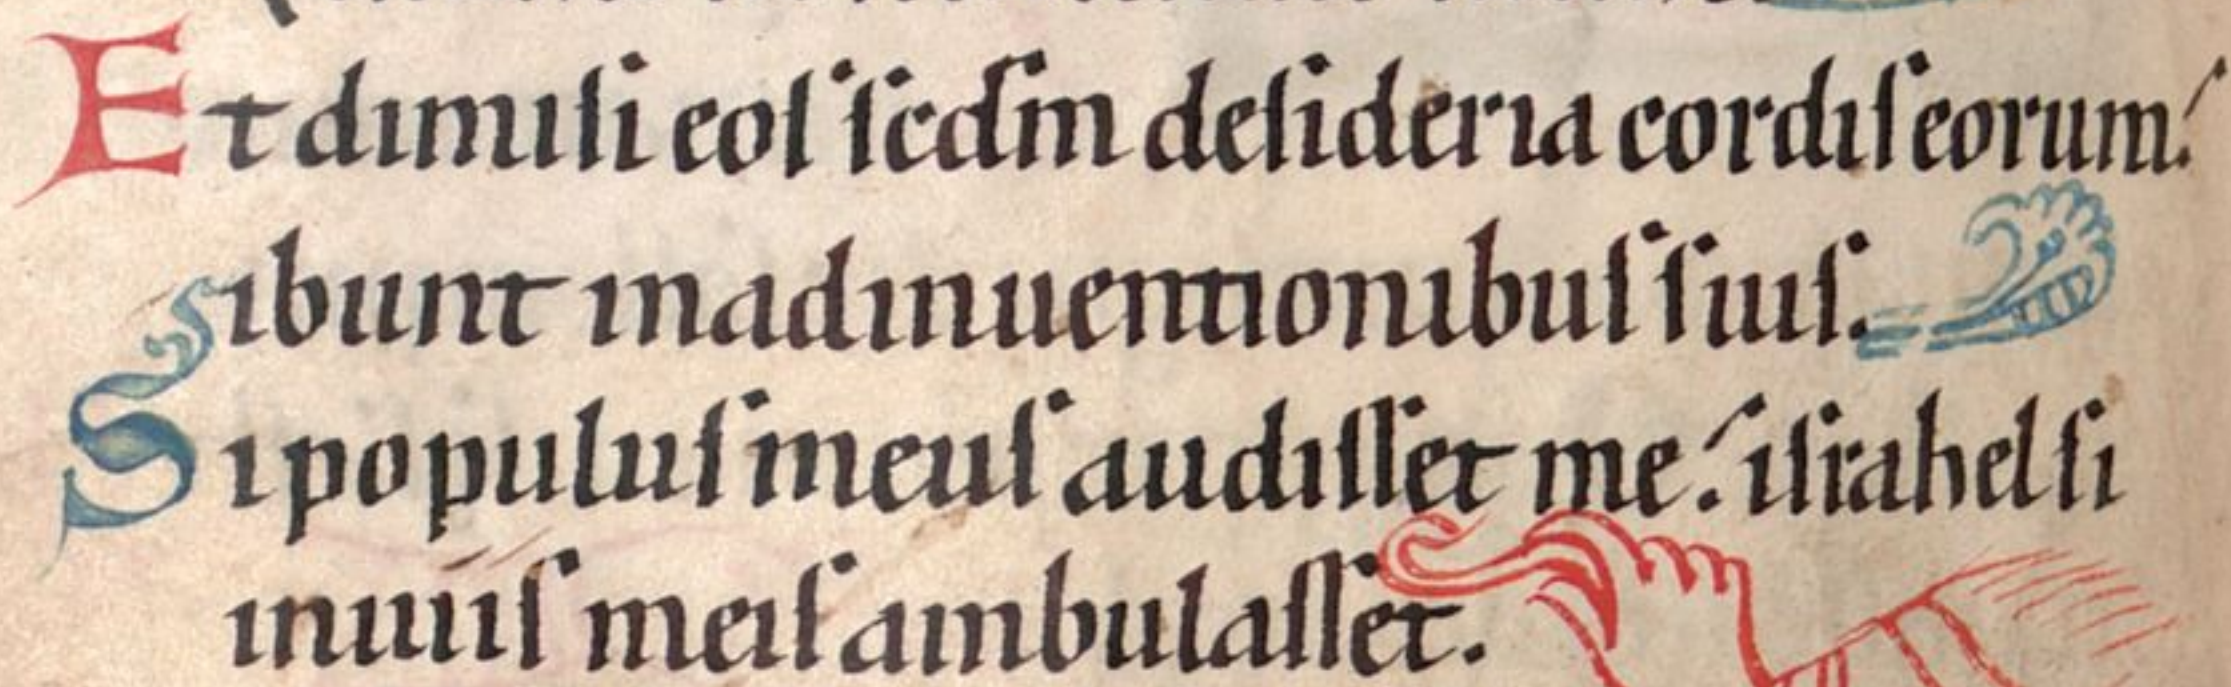 Et dimisi eos scdm desideria cordis eorum:
sibunt in adinuentionibus suis.
Si populus meus audisset me: israhel si
in uiis meis ambulasset.